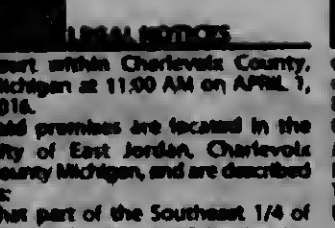 LEGAL NOTICES
Court within Charlevoix County,
Michigan at 11:00 AM on APRIL 1,
2016.
Said premises are located in the
City of East Jordan, Charlevoix
County Michigan, and are described
as:
That part of the Southeast 1/4 of